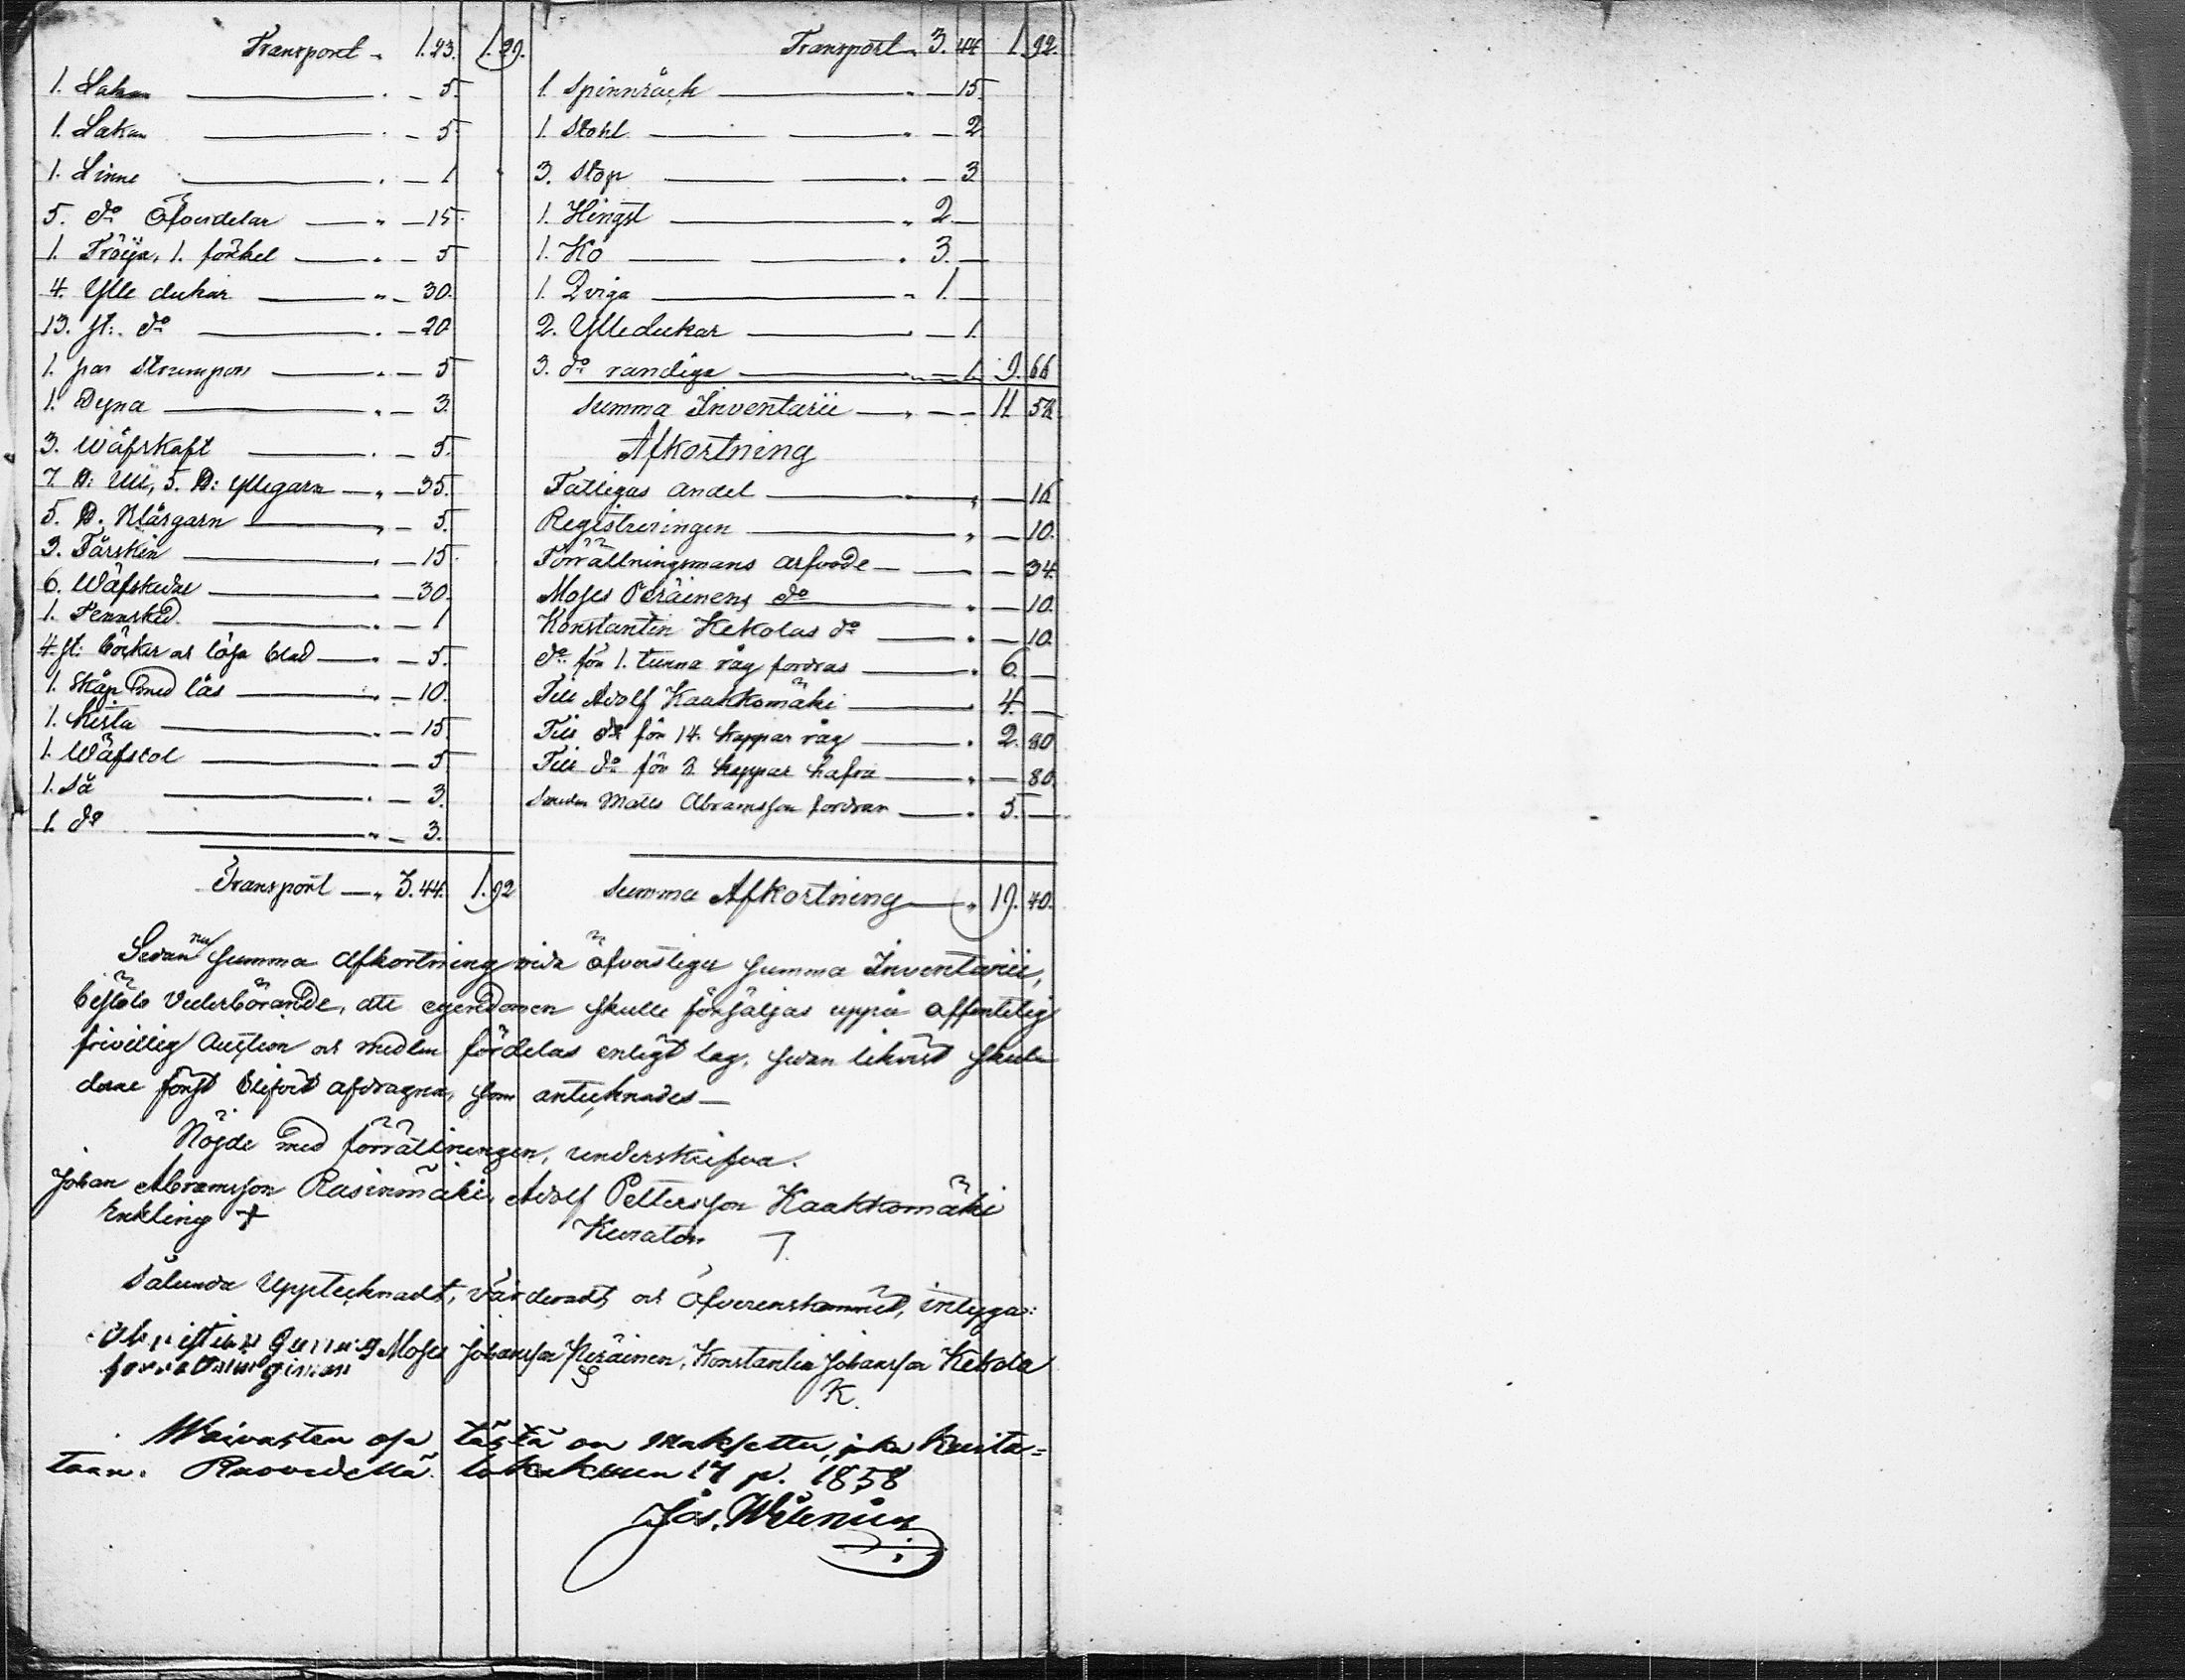 Transport - 1.23. 1.29.
1. Lakan - 5.
1. Lakan - 5.
1. Linne - 1
5. do Öfverdelar " - 15.
1. Tröija, 1. förkel - 5
4. Ylle dukar " - 30.
13. st: do - 20
1. par Strumpor - 5
1. Dyna - 3.
3. Wäfskaft - 5.
7. ℔: Ull, 5. ℔: Yllegarn " - 35.
5. ℔: Blårgarn " - 5.
3. Fårskin - 15.
6. Wäfskedar - 30.
1. Tennsked. - 1
4. st: böcker at lösa blad - 5.
1. Skåp med lås - 10.
1. Kista - 15
1. Wäfstol - 5
1. Så - 3.
1. do - 3.
Transport " 3.44. 1.92
Transport 3.44 1.92.
1. Spinnråck " - 15.
1. Stohl " - 2
3. Stop - 3
1. Hingst " 2. -
1. Ko 3. -
1. Qviga 1. -
2. Ylledukar - 1.
3. do randiga - 1. 9.66
Summa Inventarii 11 58
Afkortning
Fattigas andel - 16
Registreringen " - 10.
Förrättningsmans arfvode - 34.
Moses Peräinens do " - 10.
Konstantin Kekolas do - 10.
do för 1. tunna råg fordras 6. -
Till Adolf Kaakkomäki 4. -
Till do för 14. kappar råg 2. 80
Till do för 8. kappar hafra - 80.
Matts Abramsson fordran 5. -
Summa Afkortning " 19. 40.
Sedan nu Summa Afkortning vida öfverstiger Summa Inventarii,
beslöto Vederbörande, att egendomen skulle försäljas uppå offentelig
frivillig Auction och medlen fördelas enligt lag, sedan likväl
först blifvit afdragna, som antecknades —
Nöjde med förrättningen, underskrifva.
Johan Abramsson Rasinmäki, Adolf Pettersson Kaakkomäki
Enkling + Kurator
Sålunda Upptecknadt, Värderadt och Öfverenskommit, intyga:
Moses Johansson Peräinen, Konstantin Johansson Kekola
förrättningsman K.
Waivasten osa tästä on maksettu, joka kuita=
taan. Ruovedellä lokakuun 17 p. 1858
Jos. Wilenius